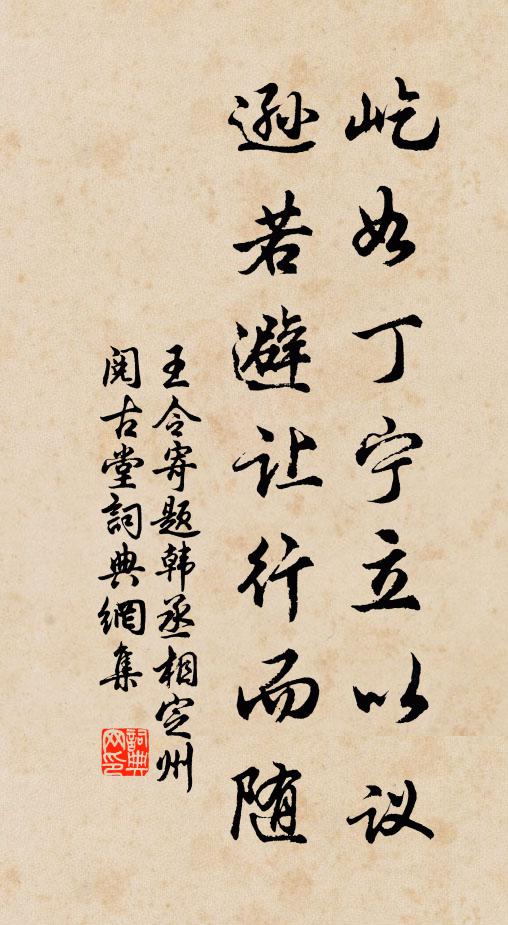 屹如丁宁立以议
逊若避让行而随
王令寄题韩丞相定州
阅古堂詞典網集
詞典网印